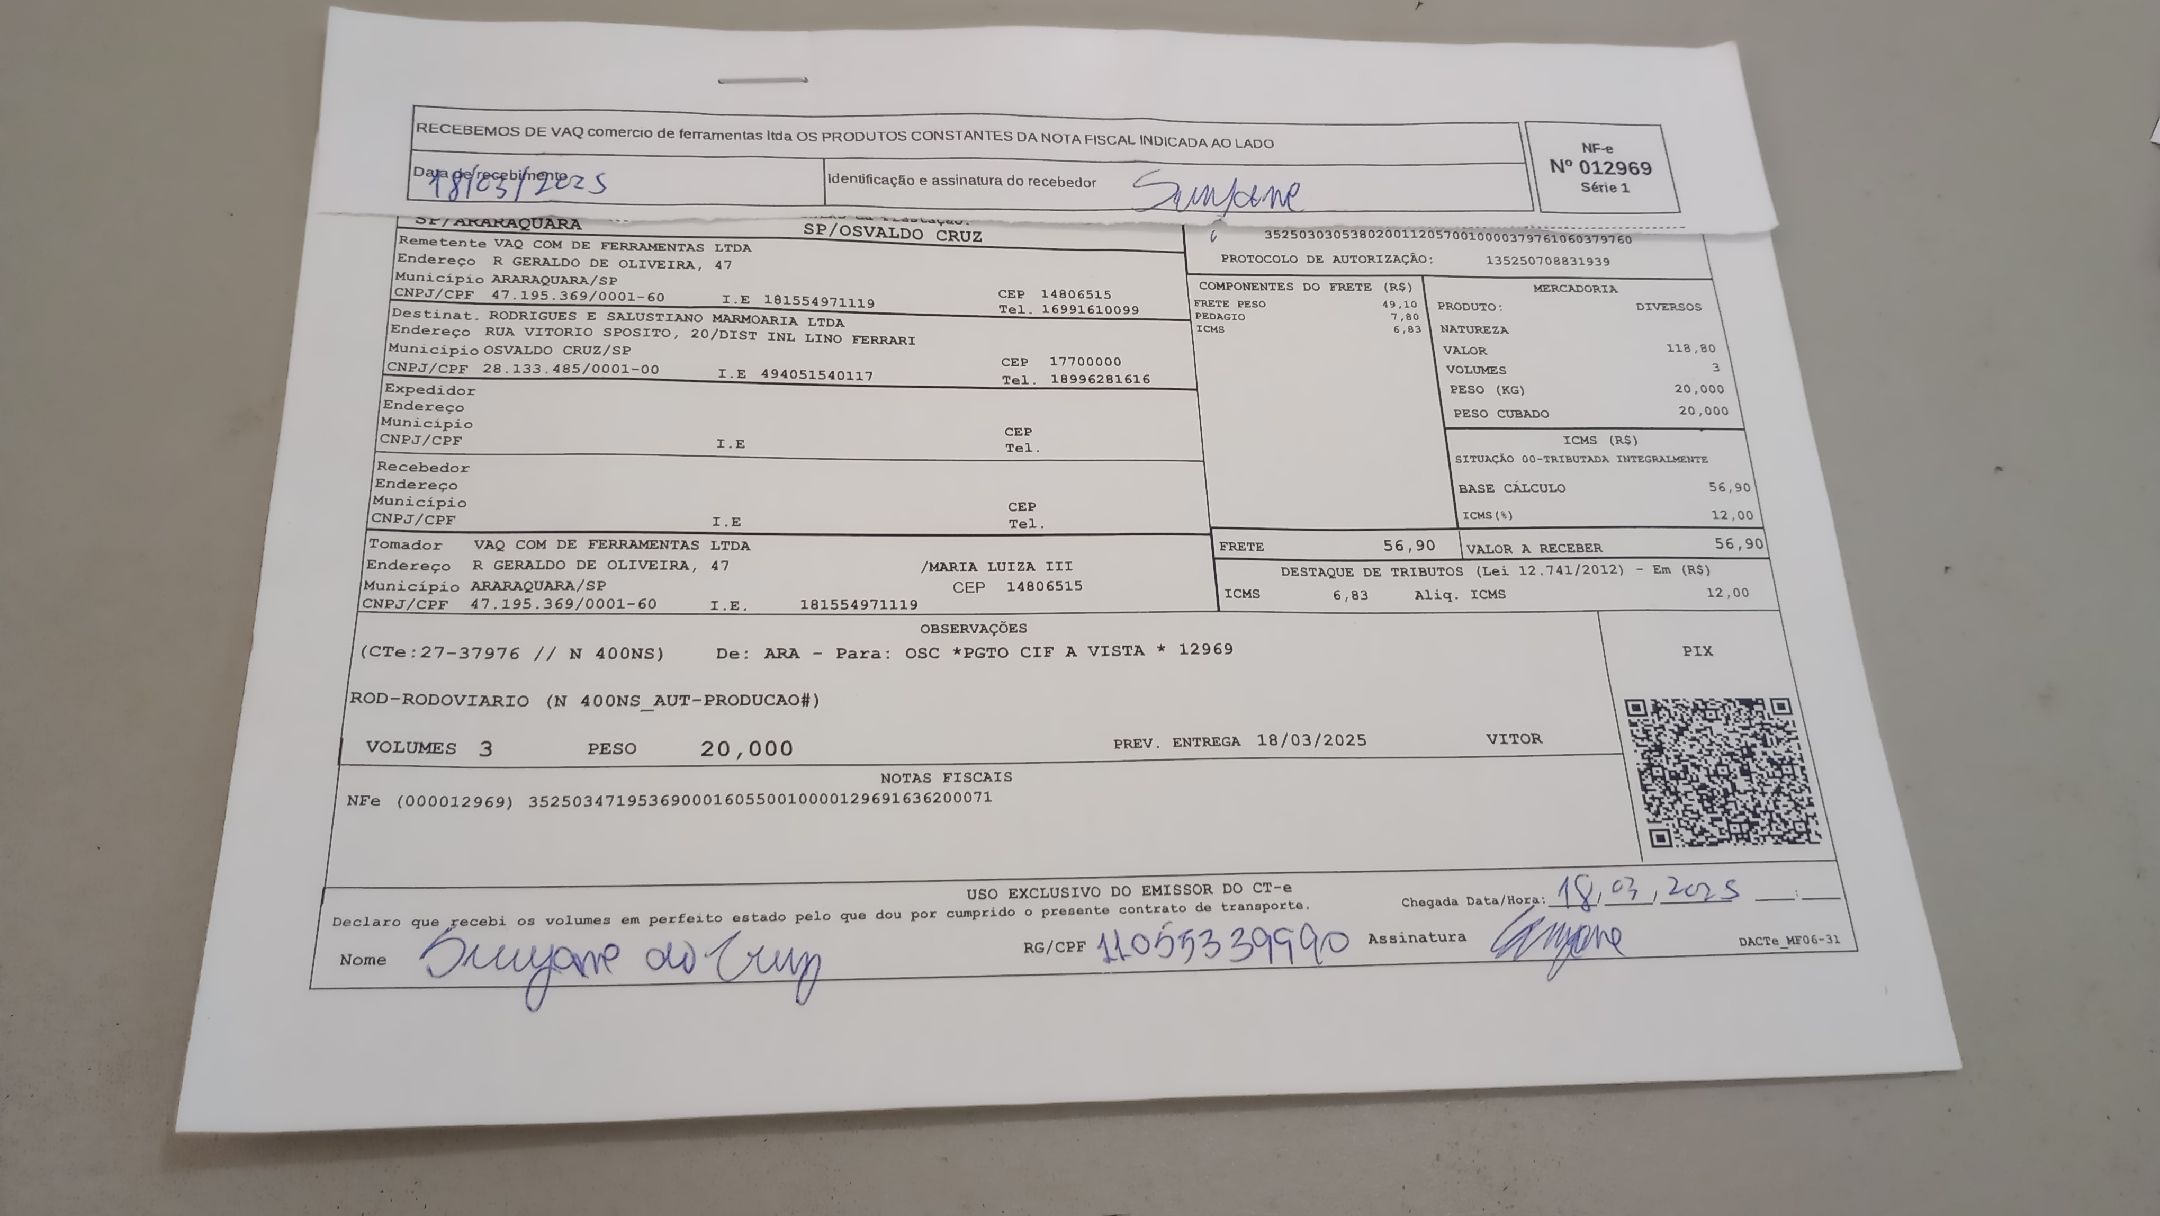 RECEBEMOS DE VAQ comercio de ferramentas ltda OS PRODUTOS CONSTANTES DA NOTA FISCAL INDICADA AO LADO
NF-e
Nº 012969
Série 1
Data de recebimento 18/03/2025
Identificação e assinatura do recebedor
SP/ARARAQUARA
SP/OSVALDO CRUZ
35250303053802001120570010000379761060379760
PROTOCOLO DE AUTORIZAÇÃO: 135250708831939
Remetente VAQ COM DE FERRAMENTAS LTDA
Endereço R GERALDO DE OLIVEIRA, 47
Município ARARAQUARA/SP CEP 14806515
CNPJ/CPF 47.195.369/0001-60 I.E 181554971119 Tel. 16991610099
Destinat. RODRIGUES E SALUSTIANO MARMOARIA LTDA
Endereço RUA VITORIO SPOSITO, 20/DIST INL LINO FERRARI
Município OSVALDO CRUZ/SP CEP 17700000
CNPJ/CPF 28.133.485/0001-00 I.E 494051540117 Tel. 18996281616
Expedidor
Endereço
Município CEP
CNPJ/CPF I.E Tel.
Recebedor
Endereço
Município CEP
CNPJ/CPF I.E Tel.
Tomador VAQ COM DE FERRAMENTAS LTDA
Endereço R GERALDO DE OLIVEIRA, 47 /MARIA LUIZA III
Município ARARAQUARA/SP CEP 14806515
CNPJ/CPF 47.195.369/0001-60 I.E. 181554971119
COMPONENTES DO FRETE (R$)
FRETE PESO 49,10
PEDAGIO 7,80
ICMS 6,83
MERCADORIA
PRODUTO: DIVERSOS
NATUREZA
VALOR 118,80
VOLUMES 3
PESO (KG) 20,000
PESO CUBADO 20,000
ICMS (R$)
SITUAÇÃO 00-TRIBUTADA INTEGRALMENTE
BASE CÁLCULO 56,90
ICMS(%) 12,00
FRETE 56,90 VALOR A RECEBER 56,90
DESTAQUE DE TRIBUTOS (Lei 12.741/2012) - Em (R$)
ICMS 6,83 Aliq. ICMS 12,00
OBSERVAÇÕES
(CTe:27-37976 // N 400NS) De: ARA - Para: OSC *PGTO CIF A VISTA * 12969
PIX
ROD-RODOVIARIO (N 400NS_AUT-PRODUCAO#)
VOLUMES 3 PESO 20,000 PREV. ENTREGA 18/03/2025 VITOR
NOTAS FISCAIS
NFe (000012969) 35250347195369000160550010000129691636200071
USO EXCLUSIVO DO EMISSOR DO CT-e
Declaro que recebi os volumes em perfeito estado pelo que dou por cumprido o presente contrato de transporte.
Chegada Data/Hora: 18/03/2025 __:__
Nome
RG/CPF 11055339990 Assinatura
DACTe_MF06-31